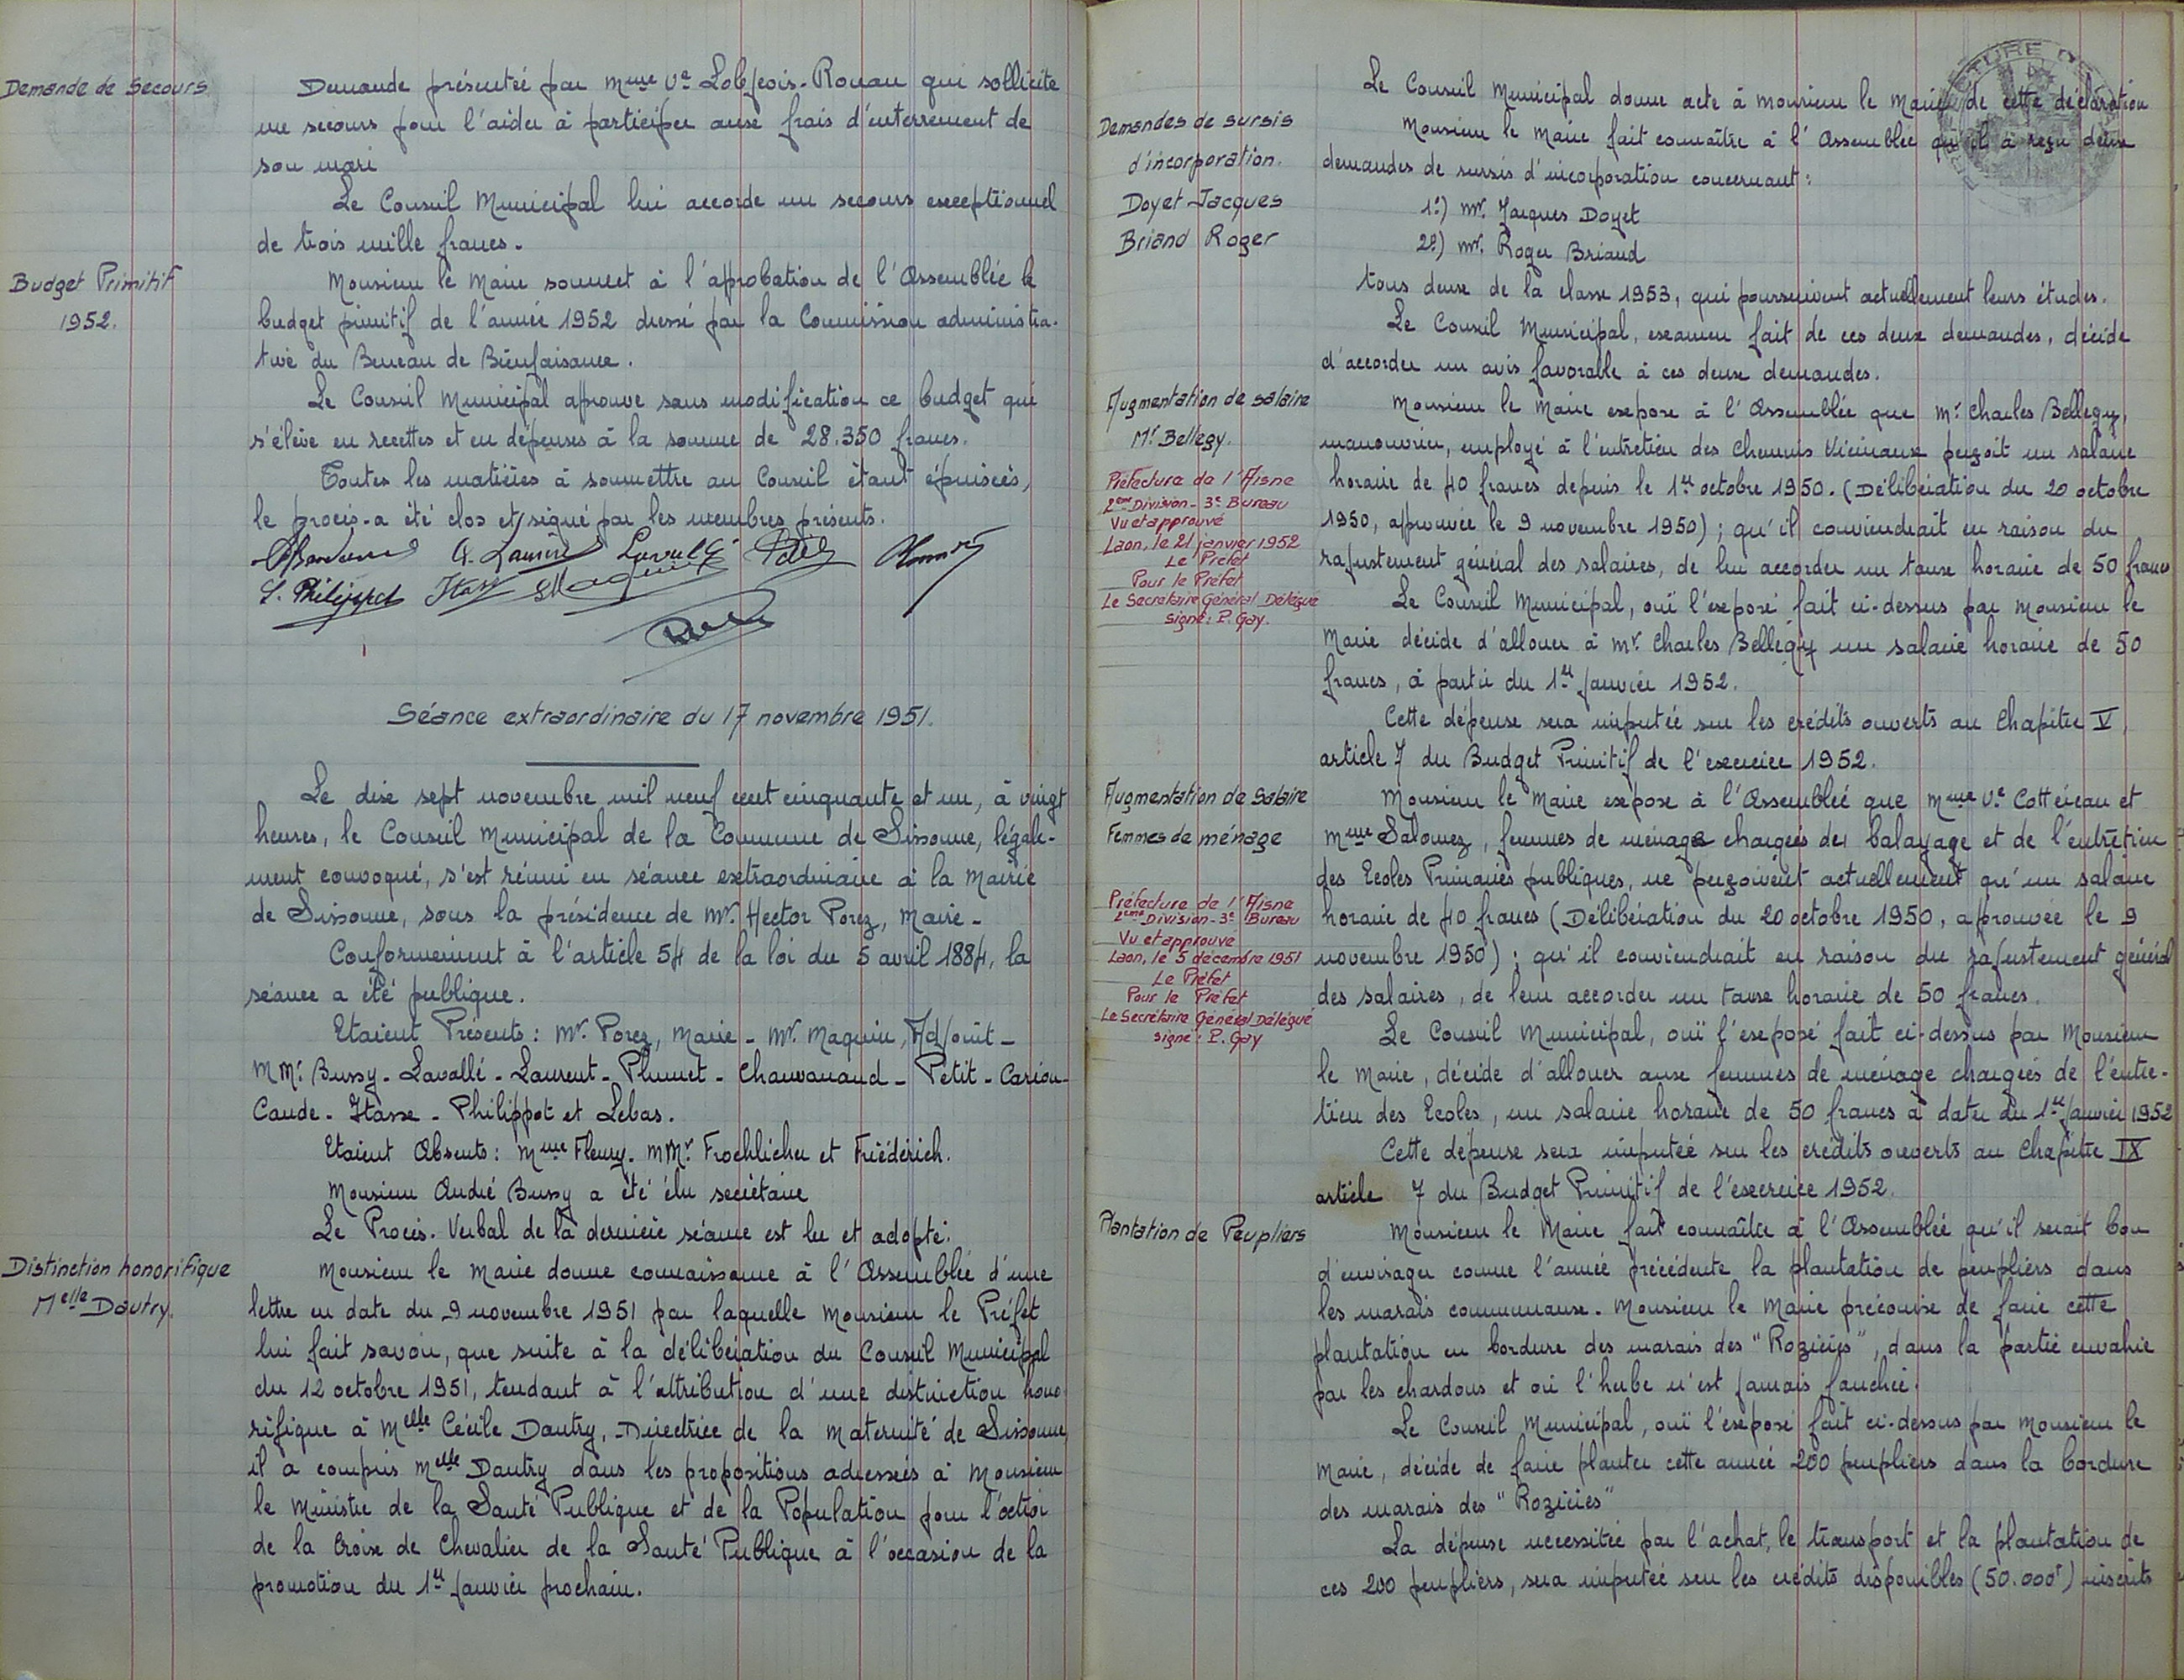 Demande de Secours
Demande présentée par Mme Ve Lobjeois-Rouau qui sollicite
un secours pour l'aider à participer aux frais d'enterrement de
son mari
Le Conseil Municipal lui accorde un secours exceptionnel
de trois mille francs.
Budget Primitif
1952.
Monsieur le Maire soumet à l'aprobation de l'Assemblée le
budget primitif de l'année 1952 dressé par la Commission administra-
tive du Bureau de Bienfaisance.
Le Conseil Municipal aprouve sans modification ce budget qui
s'élève en recettes et en dépenses à la somme de 28.350 francs.
Toutes les matières à soumettre au Conseil étant épuisées,
le procès-a été clos et signé par les membres présents.
S. Philippot
Séance extraordinaire du 17 novembre 1951.
Le dix sept novembre mil neuf cent cinquante et un, à vingt
heures, le Conseil Municipal de la Commune de Sissonne, légale-
ment convoqué, s'est réuni en séance extraordinaire à la Mairie
de Sissonne, sous la présidence de Mr. Hector Porez, Maire-
Conformément à l'article 54 de la loi du 5 avril 1884, la
séance a été publique.
Etaient Présents: Mr. Porez, Maire - Mr. Maquin, Adjoint -
MMrs Bussy - Lavallé - Laurent - Plumet - Chauvanaud - Petit - Cariou -
Caude - Itasse - Philippot et Lebas.
Etaient Absents: Mme Fleury. MMr. Froehlicher et Friédérich.
Monsieur André Bussy a été élu secrétaire
Le Procès-Verbal de la dernière séance est lu et adopté.
Distinction honorifique
Melle Dautry.
Monsieur le Maire donne connaissance à l'Assemblée d'une
lettre en date du 9 novembre 1951 par laquelle Monsieur le Préfet
lui fait savoir, que suite à la délibération du Conseil Municipal
du 12 octobre 1951, tendant à l'attribution d'une distinction hono
rifique à Melle Cécile Dautry, Directrice de la Maternité de Sissonne
il a compris Melle Dautry dans les propositions adressées à Monsieur
le Ministre de la Santé Publique et de la Population pour l'octroi
de la Croix de Chevalier de la Santé Publique à l'occasion de la
promotion du 1er janvier prochain.
Le Conseil Municipal donne acte à Monsieur le Maire de cette déclaration
Demandes de sursis
d'incorporation.
Doyet Jacques
Briand Roger
Monsieur le Maire fait connaître à l'Assemblée qu'il a reçu deux
demandes de sursis d'incorporation concernant:
1°) Mr. Jacques Doyet
2°) Mr. Roger Briand
tous deux de la classe 1953, qui poursuivent actuellement leurs études.
Le Conseil Municipal, examen fait de ces deux demandes, décide
d'accorder un avis favorable à ces deux demandes.
Augmentation de salaire
Mr Bellegy.
Préfecture de l'Aisne
2eme Division - 3e Bureau
Vu et approuvé
Laon, le 21 janvier 1952
Le Préfet
Pour le Préfet
Le Secrétaire Général Délégué
signé: P. Gay.
Monsieur le Maire expose à l'Assemblée que Mr Charles Bellegy,
manouvrier, employé à l'entretien des Chemins Vicinaux perçoit un salaire
horaire de 40 francs depuis le 1er octobre 1950. (Délibération du 20 octobre
1950, aprouvée le 9 novembre 1950); qu'il conviendrait en raison du
rajustement général des salaires, de lui accorder un taux horaire de 50 francs
Le Conseil Municipal, ouï l'exposé fait ci-dessus par Monsieur le
Maire décide d'allouer à Mr. Charles Bellégy un salaire horaire de 50
francs, à partir du 1er janvier 1952.
Cette dépense sera imputée sur les crédits ouverts au Chapitre V,
article 7 du Budget Primitif de l'exercice 1952.
Augmentation de Salaire
Femmes de ménage
Préfecture de l'Aisne
2eme Division - 3e Bureau
Vu et approuvé
Laon, le 5 décembre 1951
Le Préfet
Pour le Préfet
Le Secrétaire Général Délégué
signé: P. Gay
Monsieur le Maire expose à l'Assemblée que Mme Ve Cottéreau et
Mme Salomez, femmes de ménage chargées du balayage et de l'entretien
des Ecoles Primaires publiques, ne perçoivent actuellement qu'un salaire
horaire de 40 francs (Délibération du 20 octobre 1950, aprouvée le 9
novembre 1950); qu'il conviendrait en raison du rajustement général
des salaires, de leur accorder un taux horaire de 50 francs.
Le Conseil Municipal, ouï l'exposé fait ci-dessus par Monsieur
le Maire, décide d'allouer aux femmes de ménage chargées de l'entre-
tien des Ecoles, un salaire horaire de 50 francs à dater du 1er janvier 1952
Cette dépense sera imputée sur les crédits ouverts au Chapitre IX
article 7 du Budget Primitif de l'exercice 1952.
Plantation de Peupliers
Monsieur le Maire fait connaître à l'Assemblée qu'il serait bon
d'envisager comme l'année précédente la plantation de peupliers dans
les marais communaux. Monsieur le Maire préconise de faire cette
plantation en bordure des marais des "Rozières", dans la partie envahie
par les chardons et où l'herbe n'est jamais fauchée.
Le Conseil Municipal, ouï l'exposé fait ci-dessus par Monsieur le
Maire, décide de faire planter cette année 200 peupliers dans la bordure
des marais des "Rozières"
La dépense nécessitée par l'achat, le transport et la plantation de
ces 200 peupliers, sera imputée sur les crédits disponibles (50.000f) inscrits